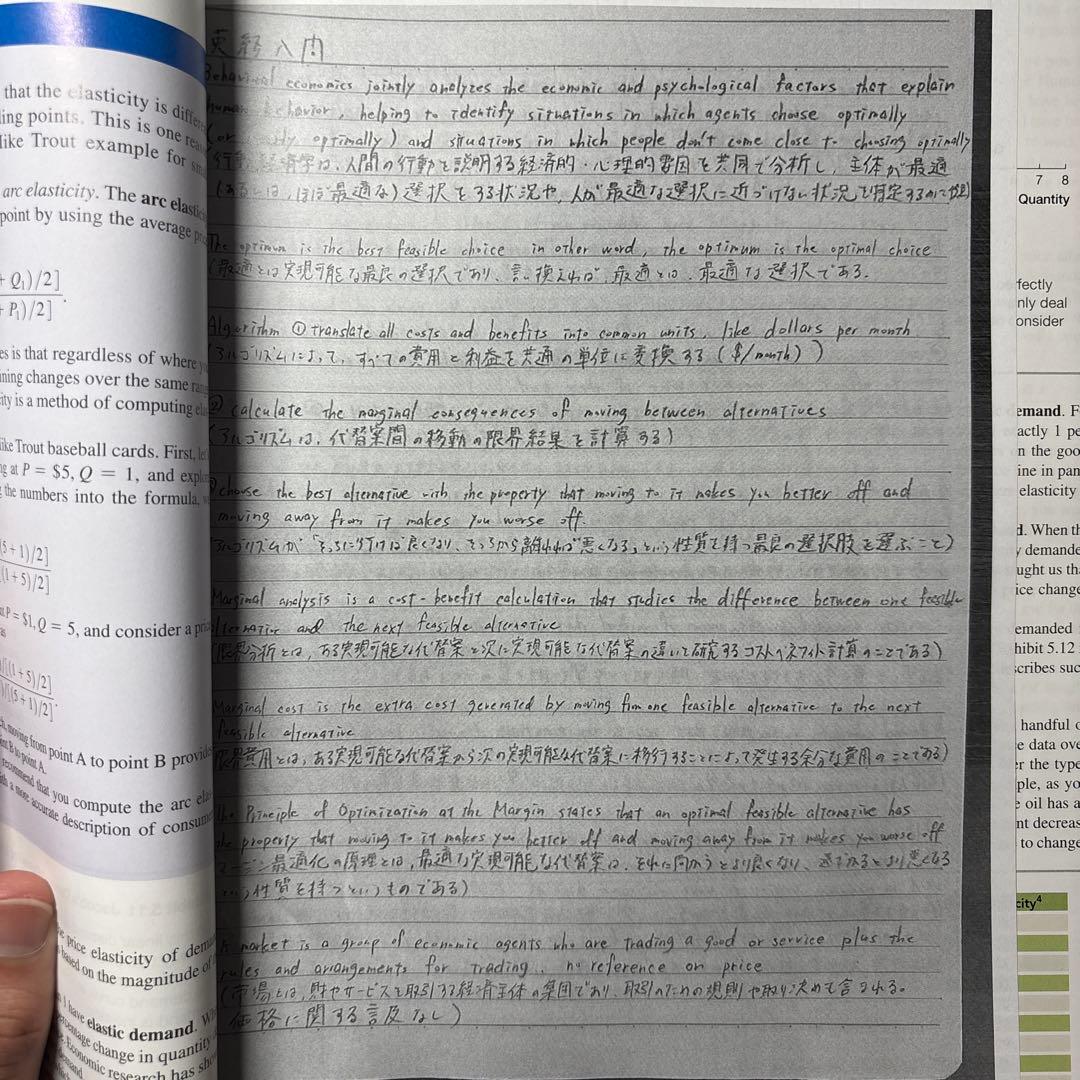 that the elasticity is
ling points. This is one
like Trout example for
arc elasticity. The arc
point by using the average
+ Q₁)/2]
+ P₁)/2]
es is that regardless of where
ining changes over the same
city is a method of computing
ike Trout baseball cards. First,
ng at P = $5, Q = 1, and
the numbers into the formula,
(5 + 1)/2]
[(1 + 5)/2]
at P = $1, Q = 5, and consider a
/[(1 + 5)/2]
)/[(5 + 1)/2]
moving from point A to point B
to point A.
recommend that you compute the arc
a more accurate description of
price elasticity of
based on the magnitude of
have elastic demand.
percentage change in quantity
Economic research has
英経入門
Behavioral economics jointly analyzes the economic and psychological factors that explain
human behavior, helping to identify situations in which agents choose optimally
(or optimally) and situations in which people don't come close to choosing optimally
行動経済学は、人間の行動を説明する経済的・心理的要因を共同で分析し、主体が最適
(あるいは、ほぼ最適な)選択をする状況や、人が最適な選択に近づけない状況を特定するのに役立
The optimum is the best feasible choice in other word, the optimum is the optimal choice
(最適とは実現可能な最良の選択であり、言い換えれば、最適とは、最適な選択である。
Algorithm ① translate all costs and benefits into common units, like dollars per month
(アルゴリズムによって、すべての費用と利益を共通の単位に変換する($/month))
② calculate the marginal consequences of moving between alternatives
(アルゴリズムは、代替案間の移動の限界結果を計算する)
choose the best alternative with the property that moving to it makes you better off and
moving away from it makes you worse off.
アルゴリズムが「そっちに行けば良くなり、そっちから離れれば悪くなる」という性質を持つ最良の選択肢を選ぶこと)
Marginal analysis is a cost-benefit calculation that studies the difference between one feasible
alternative and the next feasible alternative
(限界分析とは、ある実現可能な代替案と次に実現可能な代替案の違いを研究するコストベネフィット計算のことである)
Marginal cost is the extra cost generated by moving from one feasible alternative to the next
feasible alternative
(限界費用とは、ある実現可能な代替案から次の実現可能な代替案に移行することによって発生する余分な費用のことである)
The Principle of Optimization at the Margin states that an optimal feasible alternative has
the property that moving to it makes you better off and moving away from it makes you worse off
マージン最適化の原理とは、最適な実現可能な代替案は、それに向かうとより良くなり、遠ざかるとより悪くなる
という性質を持つというものである)
A market is a group of economic agents who are trading a good or service plus the
rules and arrangements for trading. no reference on price
(市場とは、財やサービスを取引する経済主体の集団であり、取引のための規則や取り決めも含まれる。
価格に関する言及なし)
7 8
Quantity
fectly
nly deal
onsider
emand. F
actly 1 pe
n the goo
ine in pan
elasticity
d. When th
y demande
ught us tha
ice change
emanded
hibit 5.12
scribes suc
handful o
e data ove
er the type
ple, as yo
e oil has a
nt decreas
to change
city⁴